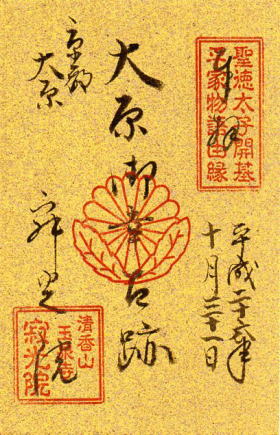 奉拝
聖徳太子開基
平家物語由縁
平成二十六年
十月二十一日
大原御幸古跡
京都
大原
寂光院
清香山
玉泉寺
寂光院